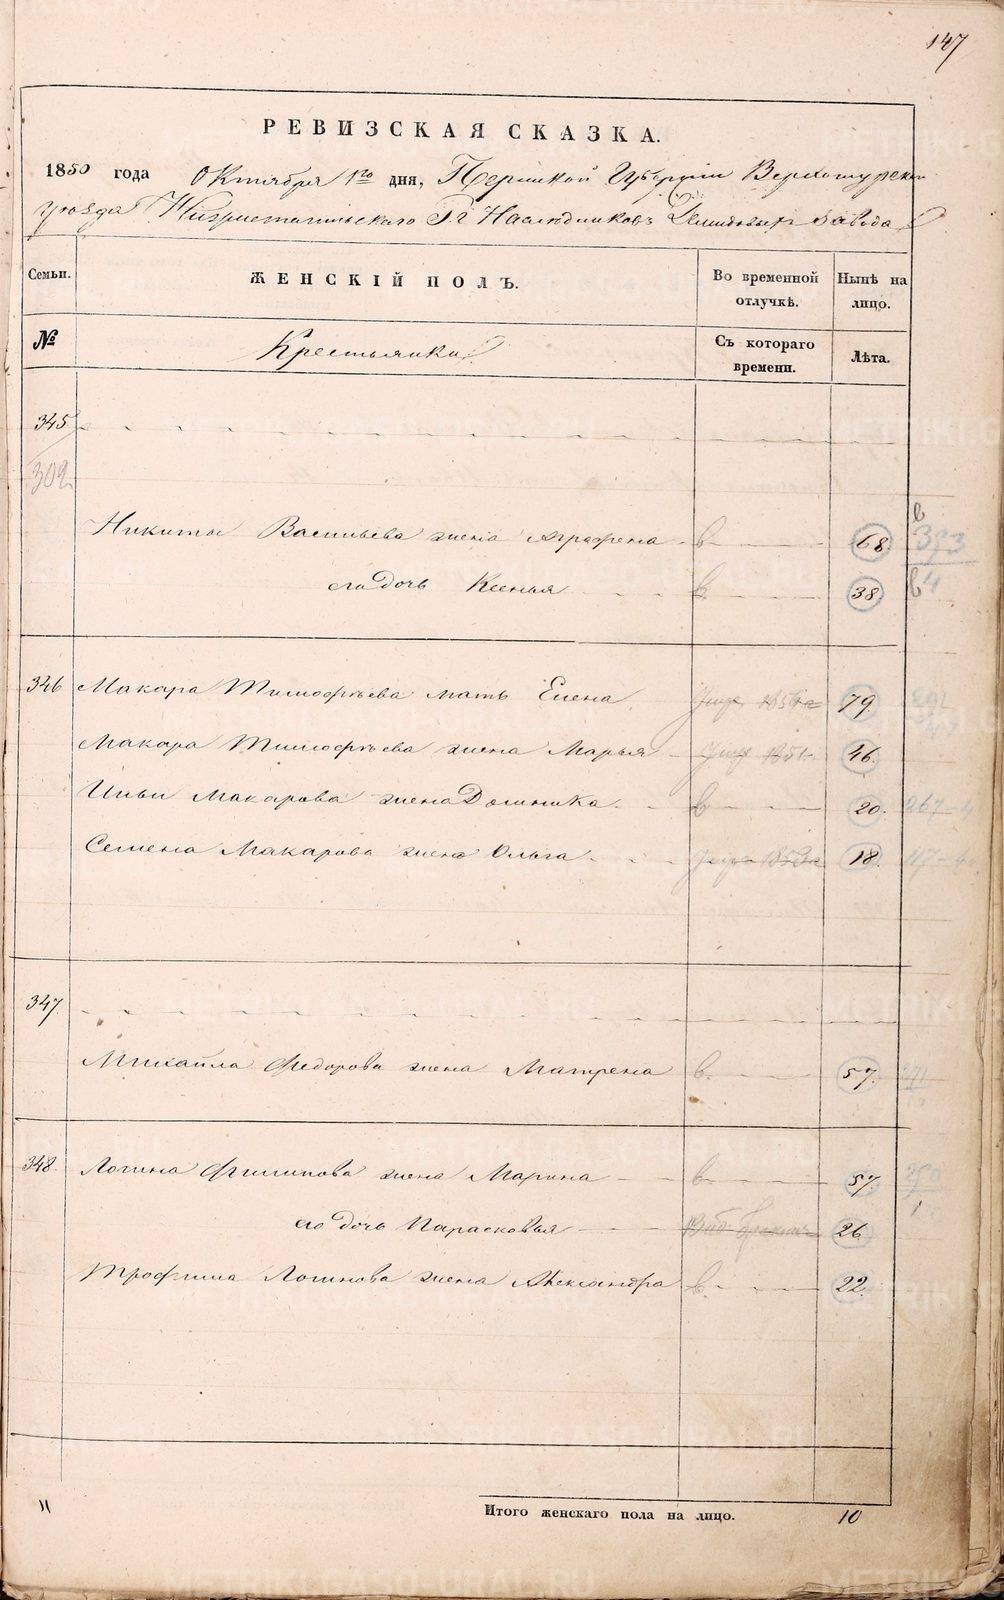 147
РЕВИЗСКАЯ СКАЗКА.
1850 года Октября 1го дня, Пермской Губернии Верхотурскаго
уезда Нижнетагильскаго Гг Наследниковъ Демидовых завода
Семьи. ЖЕНСКІЙ ПОЛЪ. Во временной отлучкѣ. Нынѣ на лицо.
№ Крестьянки Съ котораго времени. Лѣта.
345
302
Никиты Васильева жена Аграфена в 68. 353
его дочь Ксенья в 38. в 4
346 Макара Тимофѣева мать Елена 79.
Макара Тимофѣева жена Марья умре 1851 46.
Ильи Макарова жена Домника в 20. 267-4
Семена Макарова жена Ольга умре 1853 18. 117-
347.
Михайла Федорова жена Матрена в. 57.
348. Логина Филипова жена Марина в 57. 250
его дочь Парасковья 26 1
Трофима Логинова жена Александра в. 22.
11 Итого женскаго пола на лицо. 10
METRIKI.GASO-URAL.RU